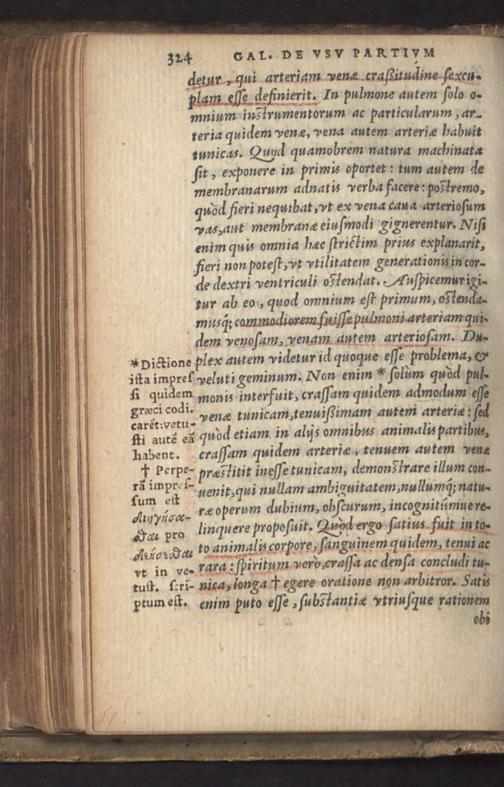 324 GAL. DE VSV PARTIVM
detur, qui arteriam venæ craßitudine ſexcu-
plam eſſe definierit. In pulmone autem ſolo o-
mnium inſtrumentorum ac particularum, ar-
teria quidem venæ, vena autem arteriæ habuit
tunicas. Quod quamobrem natura machinata
ſit, exponere in primis oportet: tum autem de
membranarum adnatis verba facere: poſtremo,
quòd fieri nequibat, vt ex vena caua arterioſum
vas, aut membranæ eiuſmodi gignerentur. Niſi
enim quis omnia hæc ſtrictim prius explanarit,
fieri non poteſt, vt vtilitatem generationis in cor-
de dextri ventriculi oſtendat. Auſpicemur igi-
tur ab eo, quod omnium eſt primum, oſtenda-
musq́; commodiorem fuiſſe pulmoni arteriam qui-
dem venoſam, venam autem arterioſam. Du-
plex autem videtur id quoque eſſe problema, &
veluti geminum. Non enim * ſolùm quòd pul-
monis interfuit, craſſam quidem admodum eſſe
venæ tunicam, tenuißimam autem arteriæ: ſed
quòd etiam in alijs omnibus animalis partibus,
craſſam quidem arteriæ, tenuem autem venæ
præſtitit ineſſe tunicam, demonſtrare illum con-
uenit, qui nullam ambiguitatem, nullumq́; natu-
ræ operum dubium, obſcurum, incognitúmue re-
linquere propoſuit. Quod ergo ſatius fuit in to-
to animalis corpore, ſanguinem quidem, tenui ac
rara: ſpiritum verò, craſſa ac denſa concludi tu-
nica, longa † egere oratione non arbitror. Satis
enim puto eſſe, ſubſtantiæ vtriuſque rationem
obi
*Dictione
iſta impreſ
ſi quidem
græci codi.
carēt: vetu-
ſti autē eā
habent.
† Perpe-
rā impreſ-
ſum eſt
διηγήσα-
σθαι pro
δεήσεσθαι
vt in ve-
tuſt. ſcri-
ptum eſt.